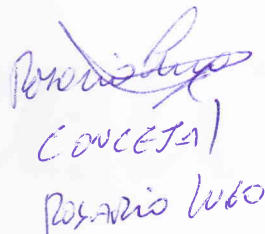 Rosario Lugo
CONCEJAl
ROSARIO LUGO